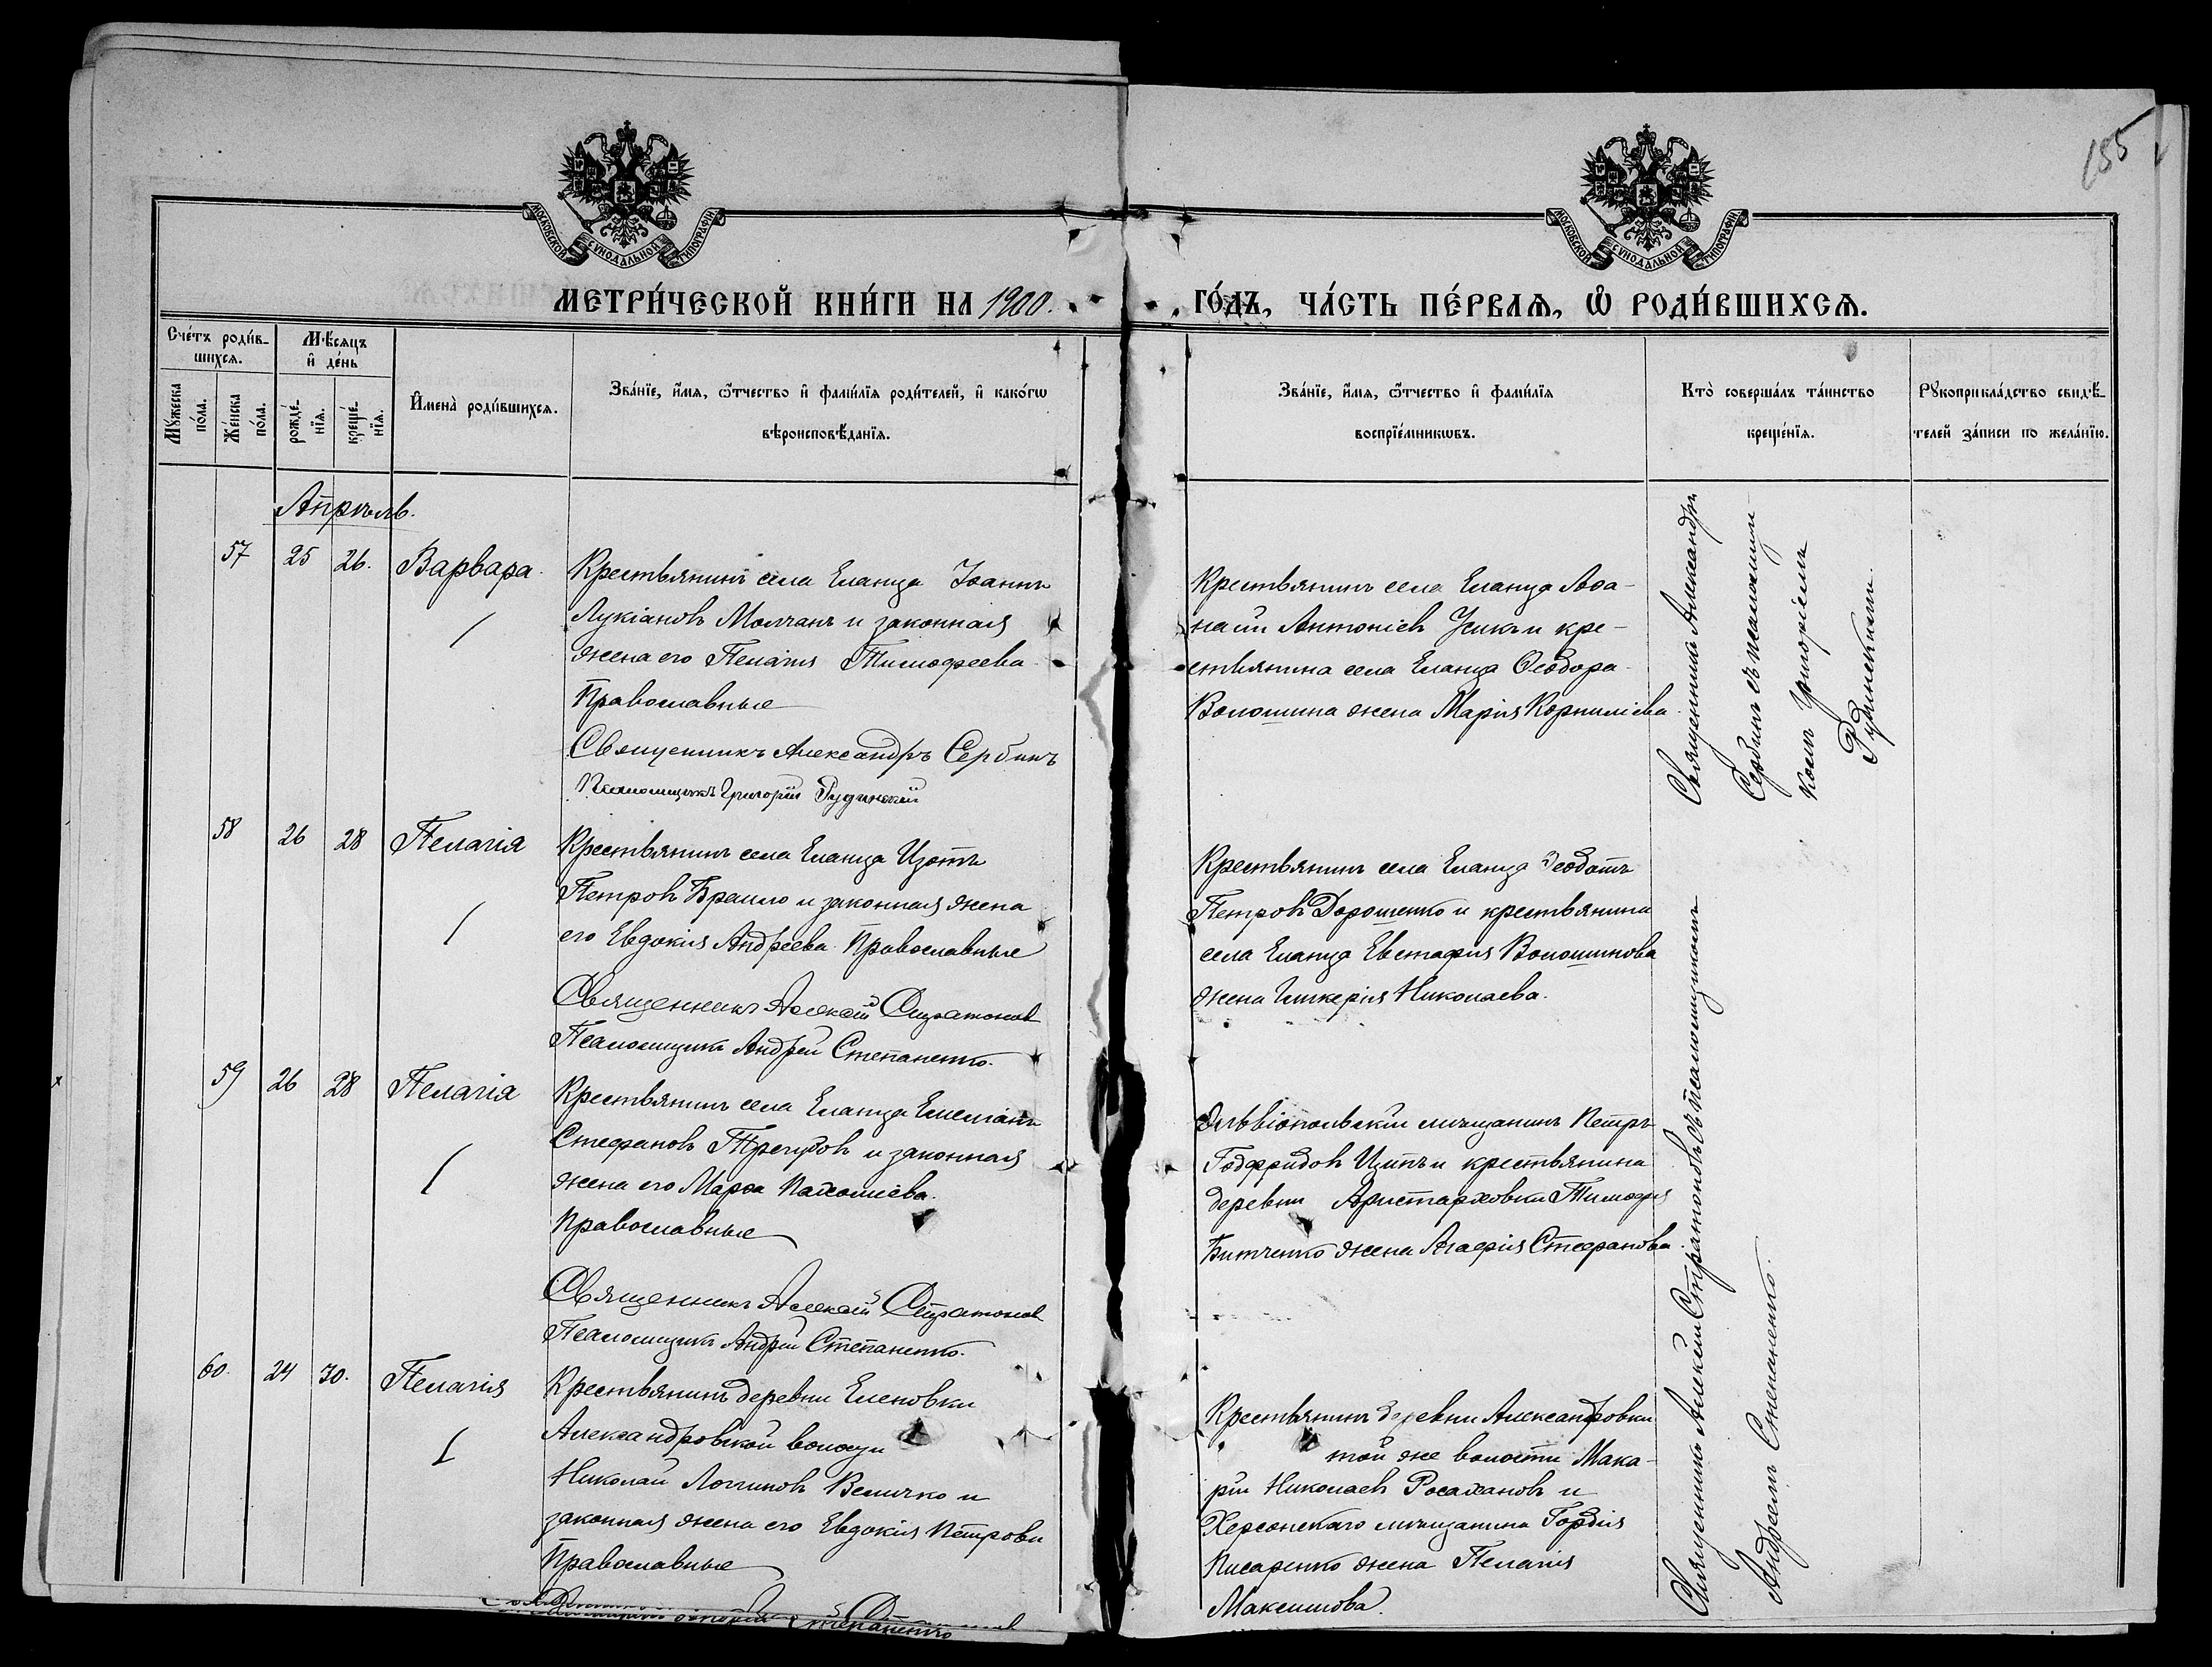 155
МОСКОВСКОЙ СѴНОДАЛЬНОЙ ТИПОГРАФІИ
МОСКОВСКОЙ СѴНОДАЛЬНОЙ ТИПОГРАФІИ
МЕТРИ́ЧЕСКОЙ КНИ́ГИ НА 1900. ГО́ДЪ, ЧА́СТЬ ПЕ́РВАЯ, Ѽ РОДИ́ВШИХСЯ.
Сче́тъ роди́в-
шихся.
Мѣ́сяцъ
и҆ де́нь
Мꙋ́жеска
по́ла.
Же́нска
по́ла.
рожде́-
нїя.
креще́-
нїя.
И҆мена̀ роди́вшихся.
Зва́нїе, и҆́мя, ѻ҆́тчество и҆ фами́лїя роди́телей, и҆ како́гѡ
вѣроисповѣ́данїя.
Зва́нїе, и҆́мя, ѻ҆́тчество и҆ фами́лїя
воспрїе́мникѡвъ.
Кто̀ соверша́лъ та́инство
креще́нїя.
Рꙋкоприкла́дство свидѣ́-
телей за́писи по жела́нїю.
Апрѣль.
57 25 26. Варвара
Крестьянинъ села Еланца Іоаннъ
Лукіановъ Молчанъ и законная
жена его Пелагія Тимофеева
Православные
Священникъ Александръ Сербинъ
Псаломщикъ Григорій Рудинскій
Крестьянинъ села Еланца Аѳа-
насій Антоніевъ Усикъ и кре-
стьянина села Еланца Ѳеодора
Волошина жена Марія Корниліева
Священникъ Александръ
Сербинъ съ псаломщи
комъ Григоріемъ
Рудинскимъ.
58 26 28 Пелагія
Крестьянинъ села Еланца Изотъ
Петровъ Браило и законная жена
его Евдокія Андреева Православные
Священникъ Алексій Стратоновъ
Псаломщикъ Андрей Степаненко.
Крестьянинъ села Еланца Ѳеодотъ
Петровъ Дорошенко и крестьянина
села Еланца Евстафія Волошинова
жена Гликерія Николаева.
59 26 28 Пелагія
Крестьянинъ села Еланца Емеліанъ
Стефановъ Трегубовъ и законная
жена его Марѳа Пахоміева.
Православные
Священникъ Алексій Стратоновъ
Псаломщикъ Андрей Степаненко.
Ольвіопольскій мѣщанинъ Петръ
Годфридовъ и крестьянина
деревни Аристарховки Тимофея
Битченко жена Агафія Стефанова.
60. 24 30. Пелагія
Крестьянинъ деревни Еленовки
Александровской волости
Николай Логгиновъ Величко и
законная жена его Евдокія Петрова
Православные
Крестьянинъ деревни Александровки
той же волости Мака-
рій Николаевъ Росахановъ и
Херсонскаго мѣщанина Гордія
Писаренко жена Пелагія
Максимова.
Священникъ Алексій Стратоновъ съ псаломщикомъ
Андреемъ Степаненко.
Степаненко